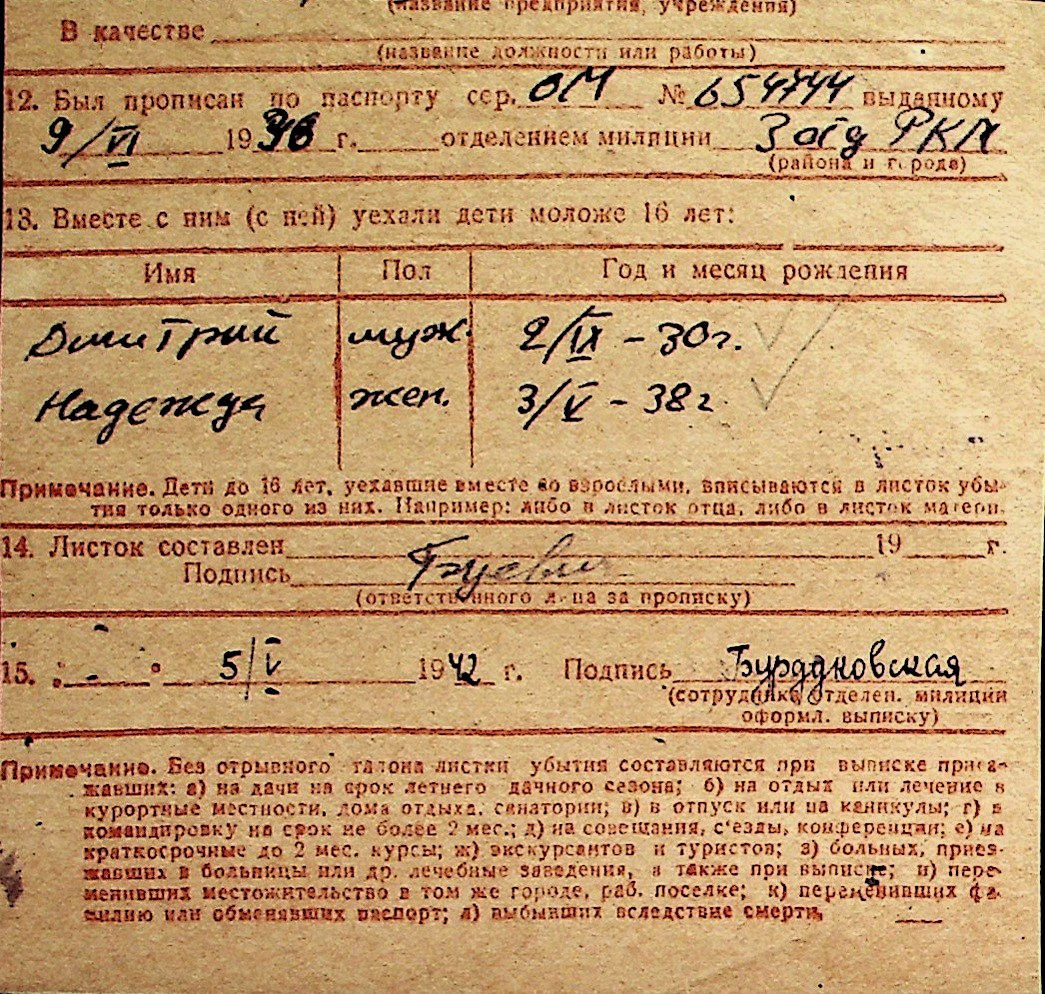 (название предприятия, учреждения)
В качестве
(название должности или работы)
12. Был прописан по паспорту сер. ОМ № 654744 выданному
9/VI 1938 г. отделением милиции 3 отд РКМ
(района и города)
13. Вместе с ним (с ней) уехали дети моложе 16 лет:
Имя Пол Год и месяц рождения
Дмитрий муж. 2/IX - 30г.
Надежда жен. 3/V - 38г
Примечание. Дети до 16 лет, уехавшие вместе со взрослыми, вписываются в листок убы-
тия только одного из них. Например: либо в листок отца, либо в листок матери.
14. Листок составлен 19 г.
Подпись
(ответственного лица за прописку)
15. 5/V 1942 г. Подпись Бурдуковская
(сотрудника отделен. милиции
оформл. выписку)
Примечание. Без отрывного талона листки убытия составляются при выписке приез-
жавших: а) на дачи на срок летнего дачного сезона; б) на отдых или лечение в
курортные местности, дома отдыха, санатории; в) в отпуск или на каникулы; г) в
командировку на срок не более 2 мес.; д) на совещания, с'езды, конференции; е) на
краткосрочные до 2 мес. курсы; ж) экскурсантов и туристов; з) больных, приез-
жавших в больницы или др. лечебные заведения, а также при выписке; и) пере-
менивших местожительство в том же городе, раб. поселке; к) переменивших фа-
милию или обменявших паспорт; л) выбывших вследствие смерти.